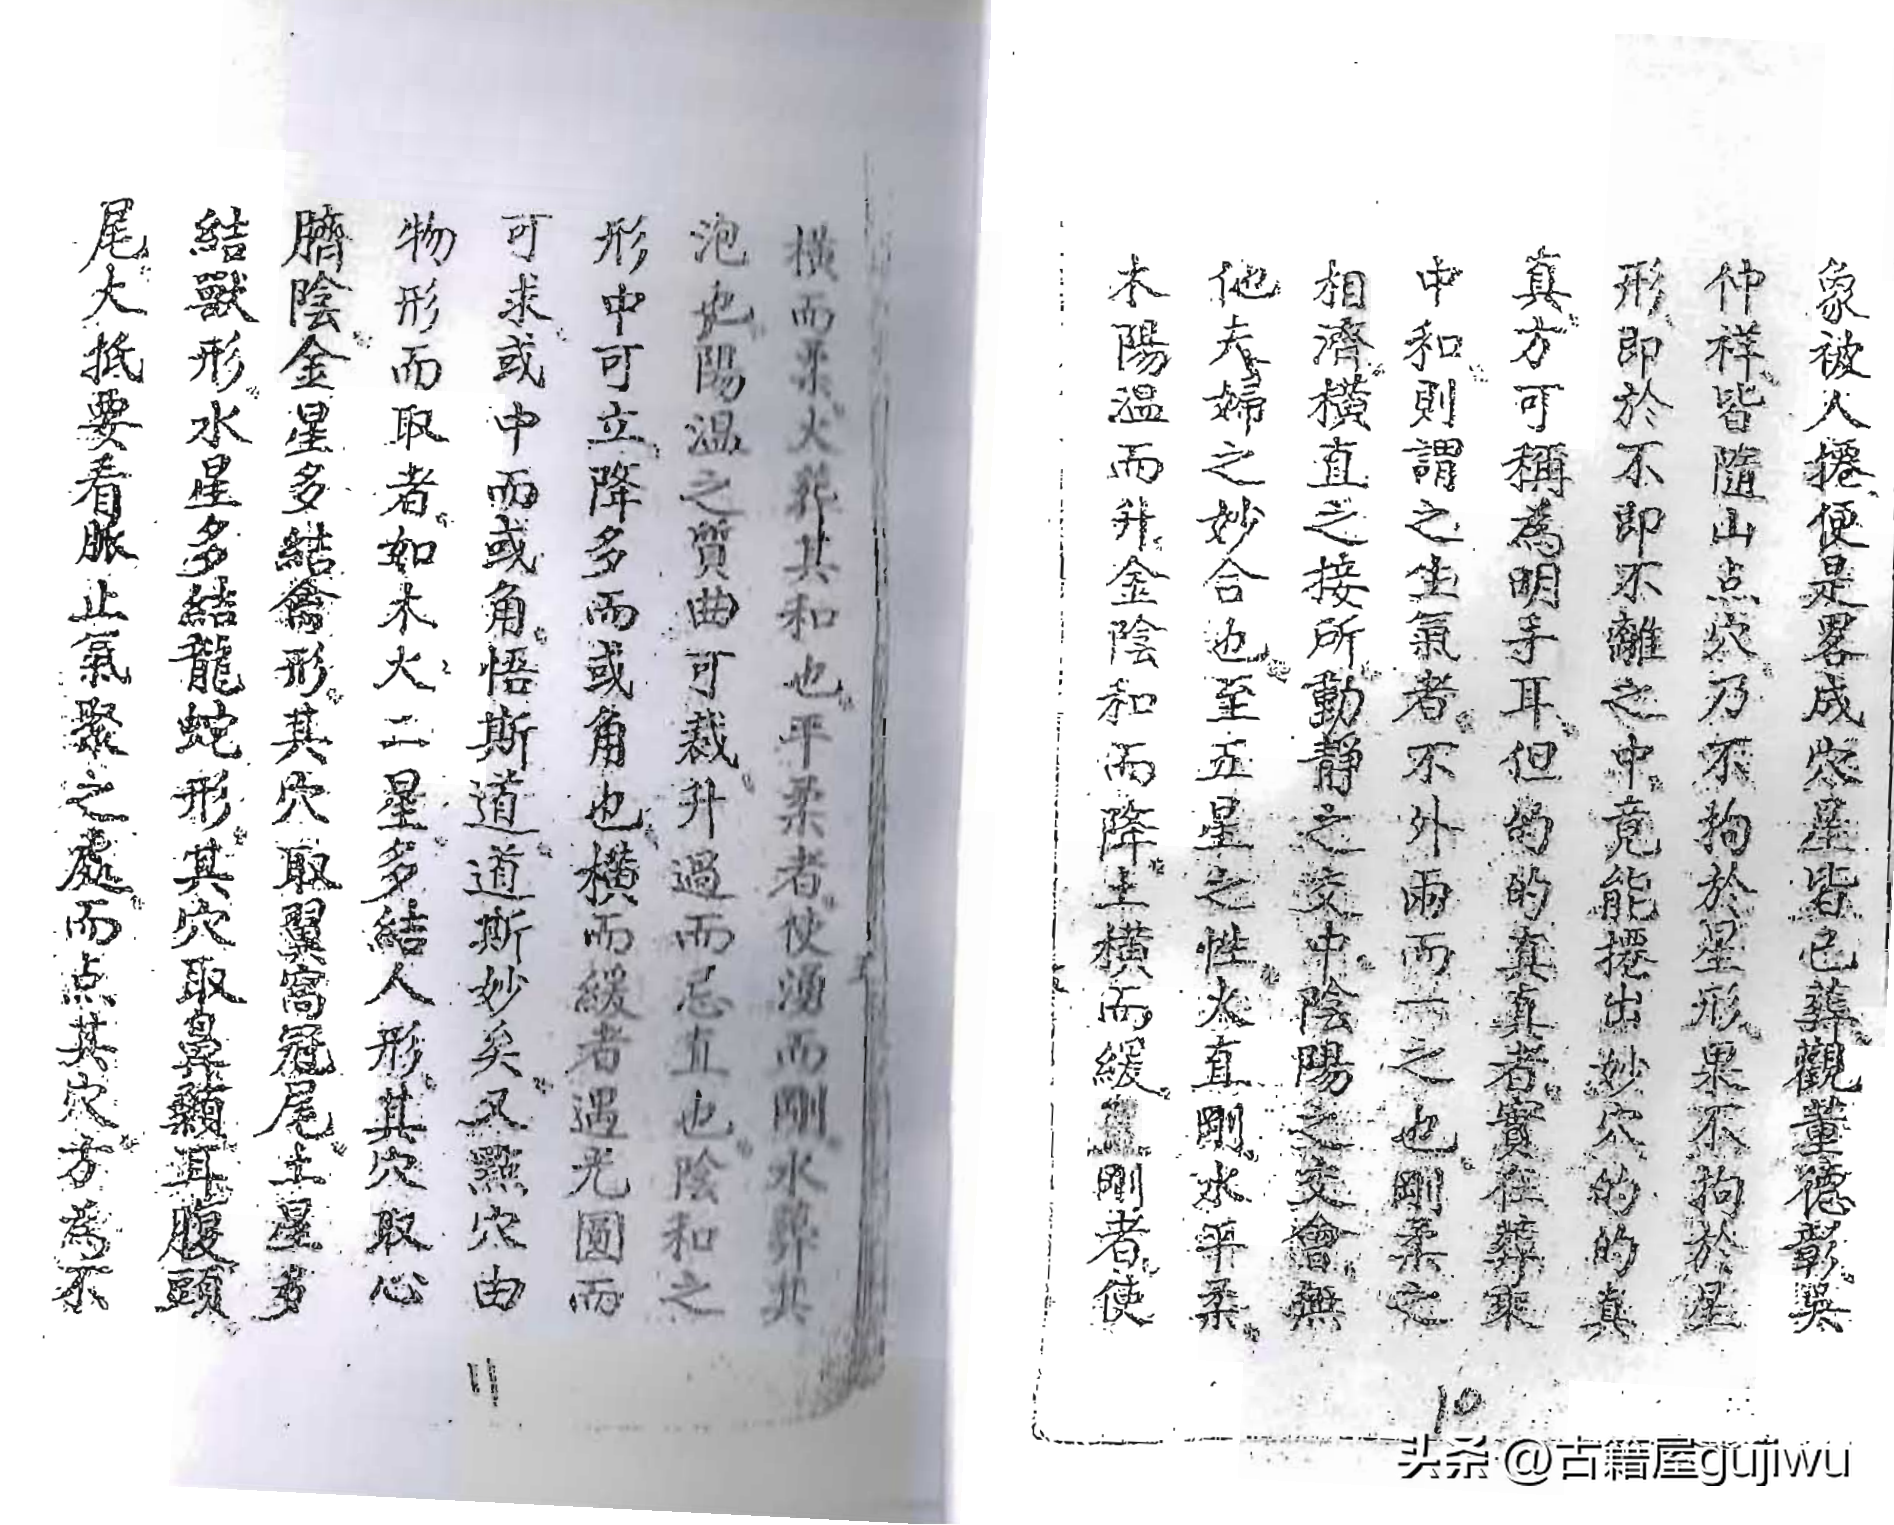 象被人搀便是畧成穴星皆已葬觀董德彰吳
仲祥皆隨山点穴乃不拘於星形果不拘於星
形即於不即不離之中竟能搀出妙穴的的真
真方可稱為明手耳但的的真真者實在葬乘
中和則謂之生氣者不外雨而一之也剛柔之
相濟橫直之接所動靜之交中陰陽之交會無
他夫婦之妙合也至五星之性火直剛水平柔
木陽温而升金陰和而降土橫而緩剛者使
橫而柔火葬其和也平柔者使湧而剛水葬其
泡也陽温之質曲可裁升過而忌直也陰和之
形中可立降多而或角也橫而緩者遇光圓而
可求或中而或角悟斯道道斯妙矣又點穴由
物形而取者如木火二星多結人形其穴取心
臍陰金星多結禽形其穴取翼窩冠尾土星多
結獸形水星多結龍蛇形其穴取鼻顙耳腹頭
尾大抵要看脈止氣聚之處而点其穴方為不
11
10
头条 @古籍屋gujiwu